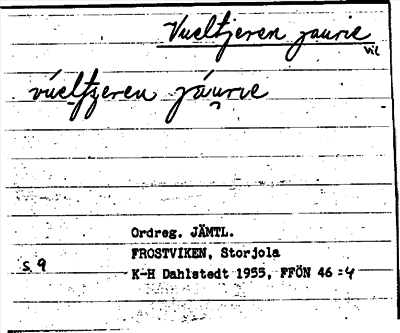 Vueltjeren jaurie
vil
vúeltjeren jáurie
Ordreg. JÄMTL.
FROSTVIKEN, Storjola
s. 9
K-H Dahlstedt 1955, FFÖN 46:4